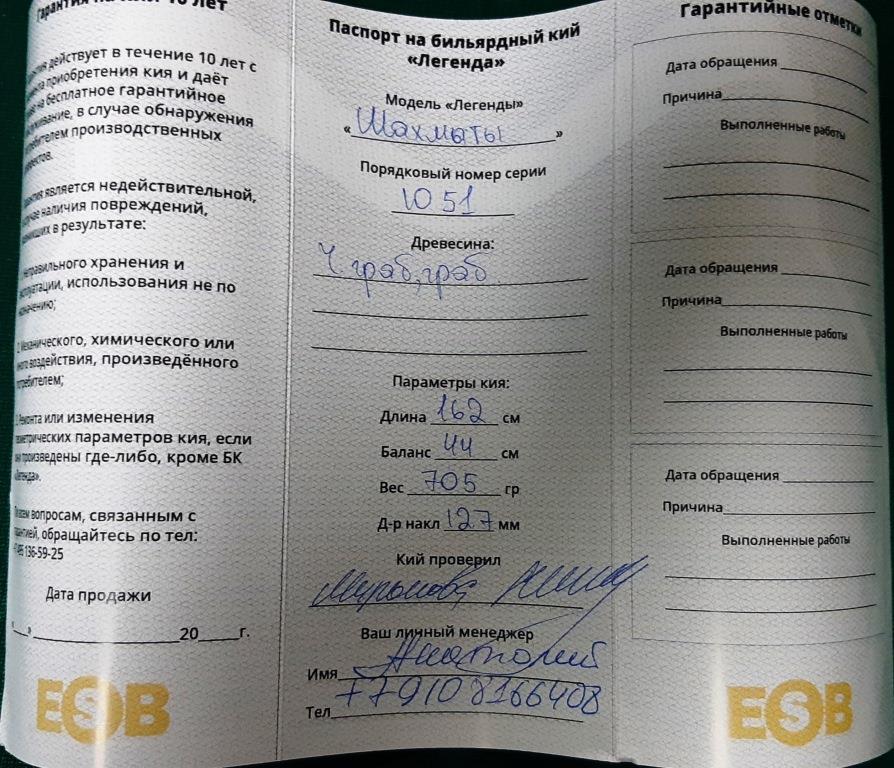 Гарантия на кий 10 лет
действует в течение 10 лет с
приобретения кия и даёт
на бесплатное гарантийное
в случае обнаружения
производственных
является недействительной,
наличия повреждений,
в результате:
хранения и
использования не по
химического или
воздействия, произведённого
или изменения
параметров кия, если
произведены где-либо, кроме БК
«Легенда».
вопросам, связанным с
обращайтесь по тел:
136-59-25
Дата продажи
«__»____________20____г.
ESB
Паспорт на бильярдный кий
«Легенда»
Модель «Легенды»
«Шахматы»
Порядковый номер серии
1051
Древесина:
Ч граб, граб
Параметры кия:
Длина 162 см
Баланс 44 см
Вес 705 гр
Д-р накл 127 мм
Кий проверил
Ваш личный менеджер
Имя Анатолий
Тел +79108166408
Гарантийные отметки
Дата обращения
Причина
Выполненные работы
Дата обращения
Причина
Выполненные работы
Дата обращения
Причина
Выполненные работы
ESB